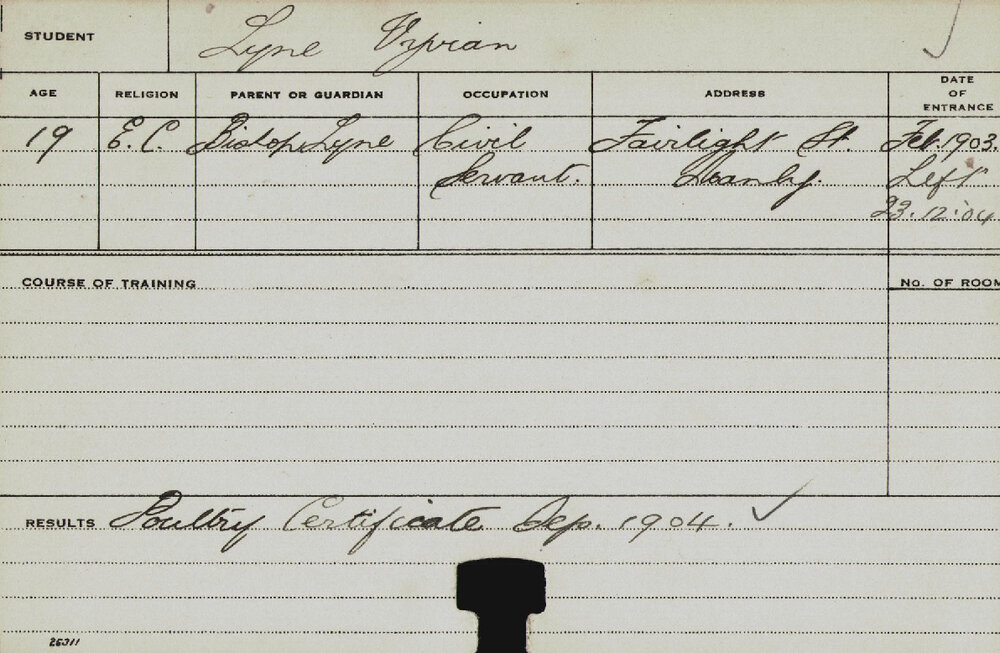 STUDENT Lyne Vyvian
AGE RELIGION PARENT OR GUARDIAN OCCUPATION ADDRESS DATE OF ENTRANCE
19 E.C. Lyne Civil Servant. Fairlight St Manly. Feb. 1903.
Left
23.12.'04
COURSE OF TRAINING No. OF ROOM
RESULTS Poultry Certificate Sep. 1904. ✓
26311